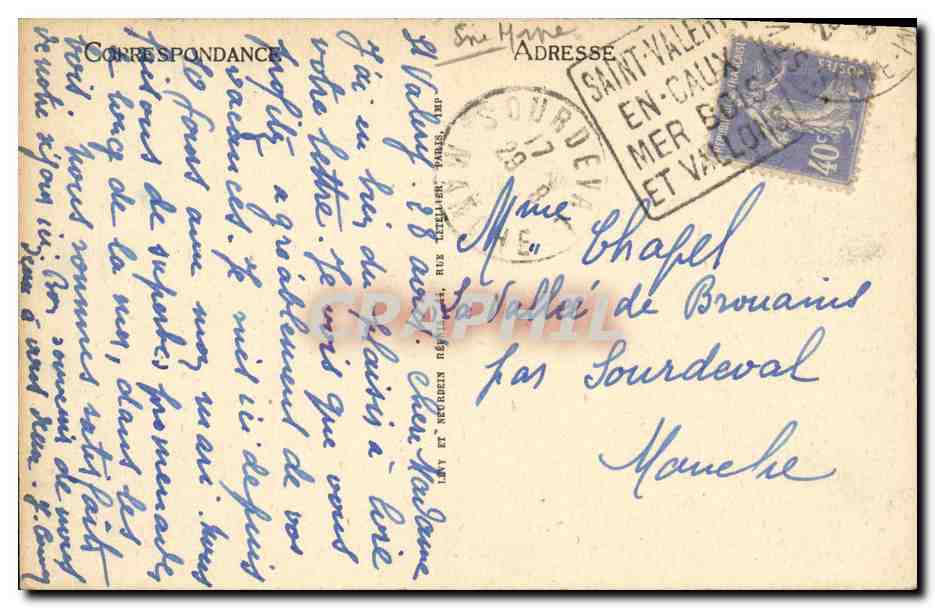 CORRESPONDANCE
ADRESSE
SAINT-VALERY
EN-CAUX
MER BOIS
ET VALLONS
SOURDEVAL
MANCHE
17
29
40c
POSTES
Mme Chapel
La Vallée de Brouains
par Sourdeval
Manche
LEVY ET NEURDEIN RÉUNIS, RUE LETELLIER, PARIS, IMP
St Valery, 28 août. Chère Madame
J'ai eu bien du plaisir à lire
votre lettre. Je vois que vous
profitez agréablement de vos
vacances. Je suis ici depuis
10 jours avec mon mari. Nous
faisons de superbes promenades
le long de la mer, dans les
bois. Nous sommes satisfaits
de notre séjour ici. Bon souvenir de nous
deux à vous deux.
CRAPHIL